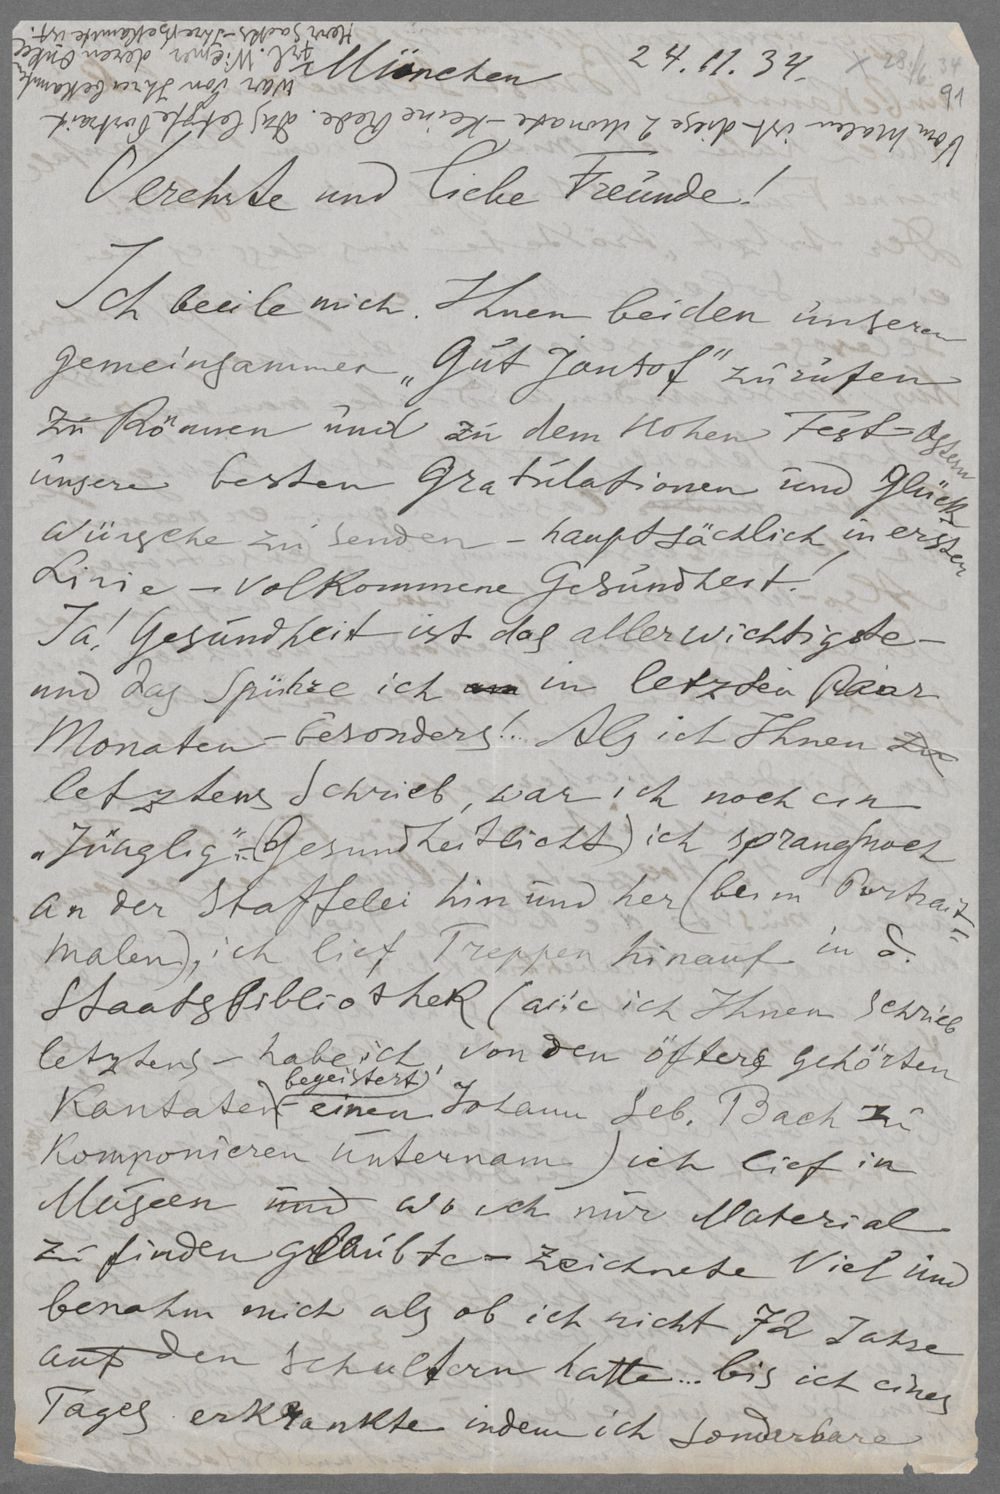 München 24.II.34.
91
Vom Malen ist diese 2 Monate - keine Rede. Das letzte Portrait
war von Ihrer bekannten
Frl. Wiener deren Onkel
Herr Sachs - Ihr Bekannte ist.
Verehrte und liebe Freunde!
Ich beeile mich. Ihnen beiden unseren
gemeinsammen „Gut Jontof" zurufen
zu können und zu dem hohen Fest-Ostern
unsere besten Gratulationen und Glück-
wünsche zu senden - hauptsächlich in erster
Linie - volkommene Gesundheit!
Ja! Gesundheit ist das allerwichtigste -
und das spühre ich in letzten Paar
Monaten - besonders!.. Als ich Ihnen zu
letztens schrieb, war ich noch ein
„Jünglig"- (Gesundheitlicht) ich sprang noch
an der Staffelei hin und her (beim Portrait=
malen), ich lief Treppen hinauf in d.
Staatsbibliothek (wie ich Ihnen schrieb
letztens - habe ich, von den öfters gehörten
Kantaten (begeistert)! - einen Johann Seb. Bach zu
Komponieren unternam) ich lief in
Museen und wo ich nur Material
zu finden glaubte - zeichnete Viel und
benahm mich als ob ich nicht 72 Jahre
auf den Schultern hatte... bis ich eines
Tages erkrankte indem ich sonderbare